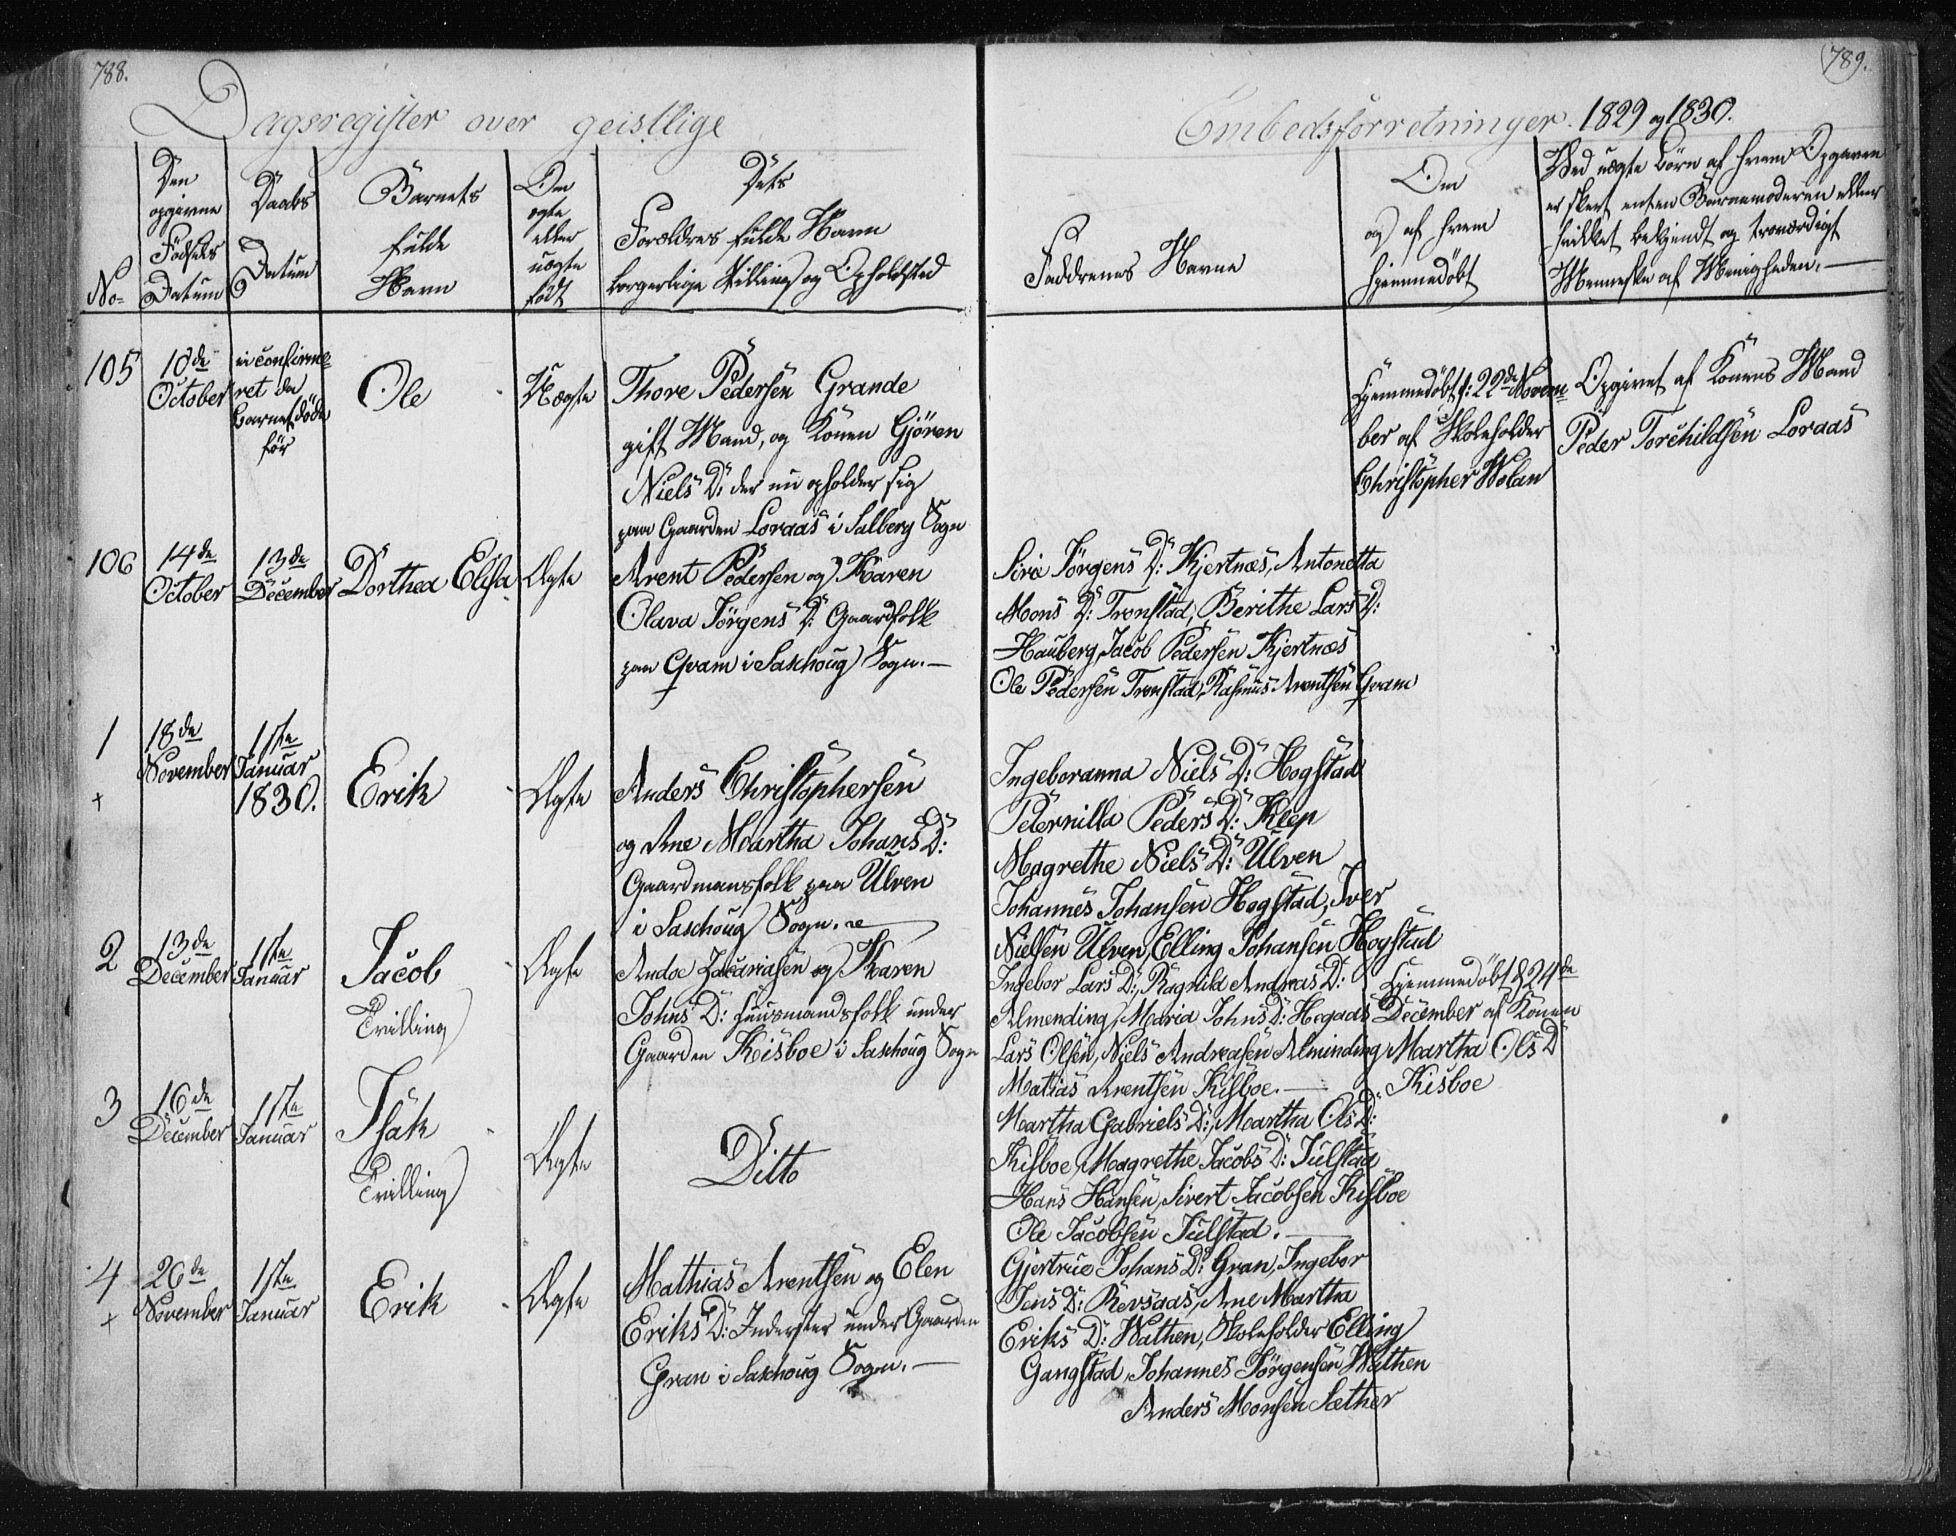 788.
789.
Dagsregister over geistlige
Embedsforretninger. 1829 og 1830.
No
Den
opgivne
Födsels
Datum
Daabs
Datum
Barnets
fulde
Navn
Om
ægte
eller
uægte
födt
Dets
Forældres fulde Navn
borgerlige Stilling og Opholdsted
Faddrenes Navne
Om
og af hvem
hjemmedöbt
Ved uægte Börn af hvem Opgaven
er skeet enten Barnemoderen eller
bekjendt og troværdigt
Menneske af Menigheden.
105
10de
October
ei confirme-
ret da
Barnet döde
för
Ole
Uægte
Thore Pedersen Grande
gift Mand, og Konen Gjören
Niels D: der nu opholder sig
paa Gaarden Loraas i Salberg Sogn
Hjemmedöbt d: 22de Novem
ber af Skoleholder
Christopher Wolan
Opgivet af Konens Mand
Peder Torchildsen Loraas
106
14de
October
13de
December
Dorthea Elisa
Ægte
Arent Pedersen og Karen
Olava Jörgens D: Gaardfolk
paa Qvam i Saxhoug Sogn.
Sirie Jörgens D: Kjertnæs, Antonetta
Mons D: Tronstad, Berithe Lars D:
Hauberg, Jacob Pedersen Kjertnæs
Ole Pedersen Tronstad, Rasmus Arentsen Qvam
1
+
18de
November
1ste
Januar
1830.
Erik
Ægte
Anders Christophersen
og Ane Martha Johans D:
Gaardmansfolk paa Ulven
i Saxhoug Sogn.
Ingeboranna Niels D: Hogstad
Peternilla Peders D: Klep
Magrethe Niels D: Ulven
Johannes Johansen Hogstad, Iver
Nielsen Ulven, Elling Johansen Hogstad
2
13de
December
1ste
Januar
Jacob
Tvilling
Ægte
Andoe Zacariasen og Karen
Johns D: Huusmandsfolk under
Gaarden Kisboe i Saxhoug Sogn
Ingebor Lars D:, Ragnild Andreas D:
Almending, Maria Johns D: Hegaas
Lars Olsen, Niels Andreasen Alminding
Mathias Arentsen Kisboe.
Hjemmedöbt d 24de
December af Konen
Martha Ols D
Kisboe
3
16de
December
1ste
Januar
Isak
Tvilling
Ægte
Ditto
Martha Gabriels D:, Martha Ols D:
Kisboe, Magrethe Jacobs D: Julstad
Hans Hansen, Sivert Jacobsen Kisboe
Ole Jacobsen Julstad.
4
+
26de
November
1ste
Januar
Erik
Ægte
Mathias Arentsen og Elen
Eriks D: Inderster under Gaarden
Gran i Saxhoug Sogn.
Gjertrue Johans D: Gran, Ingebor
Jens D: Revsaas, Ane Martha
Eriks D: Wathen, Skoleholder Elling
Gangstad, Johannes Jörgensen Wathen
Anders Monsen Sæther